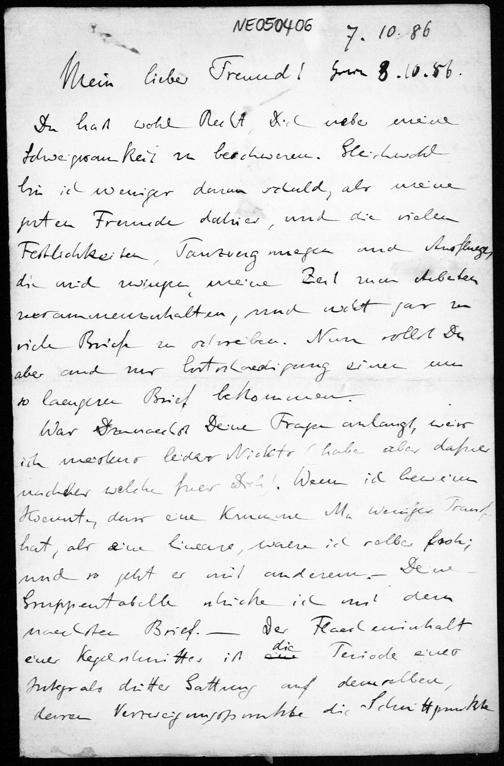 NE050406
7.10.86
Mein lieber Freund! 8.10.86.
Du hast wohl Recht, Dich ueber meine
Schweigsamkeit zu beschweren. Gleichwohl
bin ich weniger daran schuld, als meine
guten Freunde dahier, und die vielen
Festlichkeiten, Tanzvergnuegen und Ausfluege,
die mich zwingen, meine Zeit zum Arbeiten
zusammenzuhalten, und nicht gar zu
viele Briefe zu schreiben. Nun sollst Du
aber auch zur Entschaedigung einen um
so laengeren Brief bekommen.
Was Deine Fragen anlangt, weiss
ich meistens leider Nichts! habe aber dafuer
nachher welche fuer Dich! Wenn ich beweisen
koennte, dass eine Kummersche weniger
hat, als eine lineare, waere ich selber froh;
und so geht es mit anderem. — Deine
Gruppentabelle schicke ich mit dem
naechsten Brief. — Der Flaecheninhalt
eines Kegelschnittes ist die Periode eines
Integrals dritter Gattung auf demselben,
dessen Verzweigungspunkte die Schnittpunkte